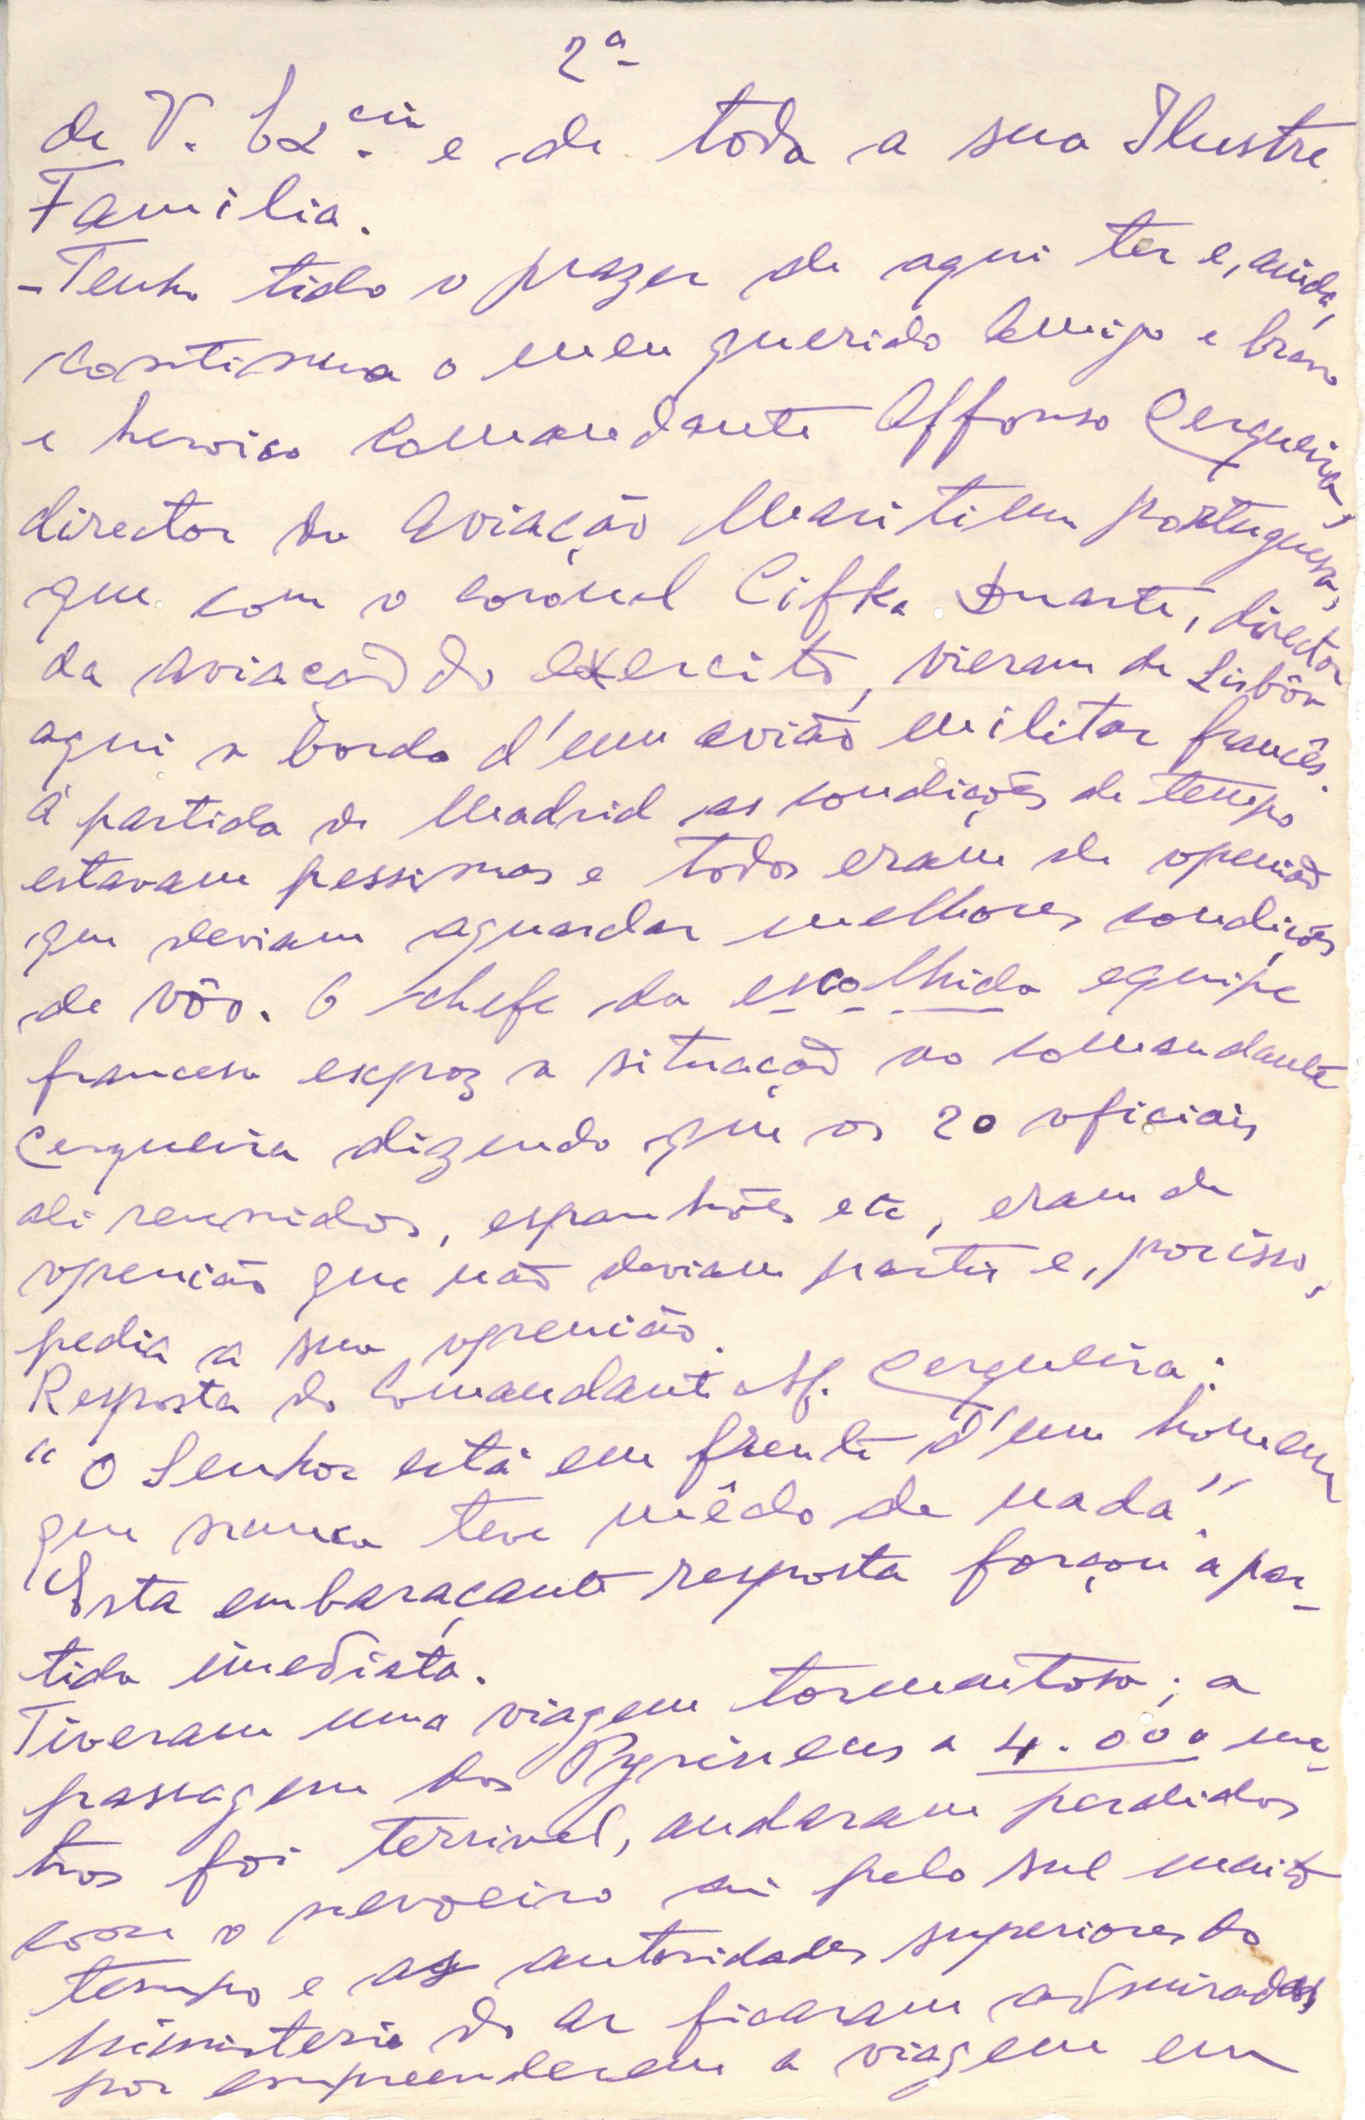 2ª
de V. Ex.cia e de toda a sua Ilustre
Familia.
- Tenho tido o prazer de aqui ter e, ainda,
continua o meu querido Amigo e bravo
e heroico Comandante Affonso Cerqueira,
director da Aviação Maritima portuguesa,
que com o coronel Cifka Duarte, director
da aviação do exercito, vieram de Lisbôa
aqui a bordo d'um avião militar francês.
Á partida de Madrid as condições de tempo
estavam pessimas e todos eram de openião
que deviam aguardar melhores condições
de vôo. O chefe da escolhida equipe
francesa expoz a situação ao comandante
Cerqueira dizendo que os 20 oficiais
ali reunidos, espanhões etc, eram de
openião que não deviam partir e, porisso,
pedia a sua openião.
Resposta do Comandante Af. Cerqueira:
"O Senhor está em frente d'um homem
que nunca teve mêdo de nada".
Esta embaraçante resposta forçou a par-
tida imediata.
Tiveram uma viagem tormentosa; a
passagem dos Pyrineus a 4.000 me-
tros foi terrivel, andaram perdidos
com o nevoeiro ai pelo sul muito
tempo e as autoridades superiores do
ministerio do Ar ficaram admirados
por empreenderem a viagem em